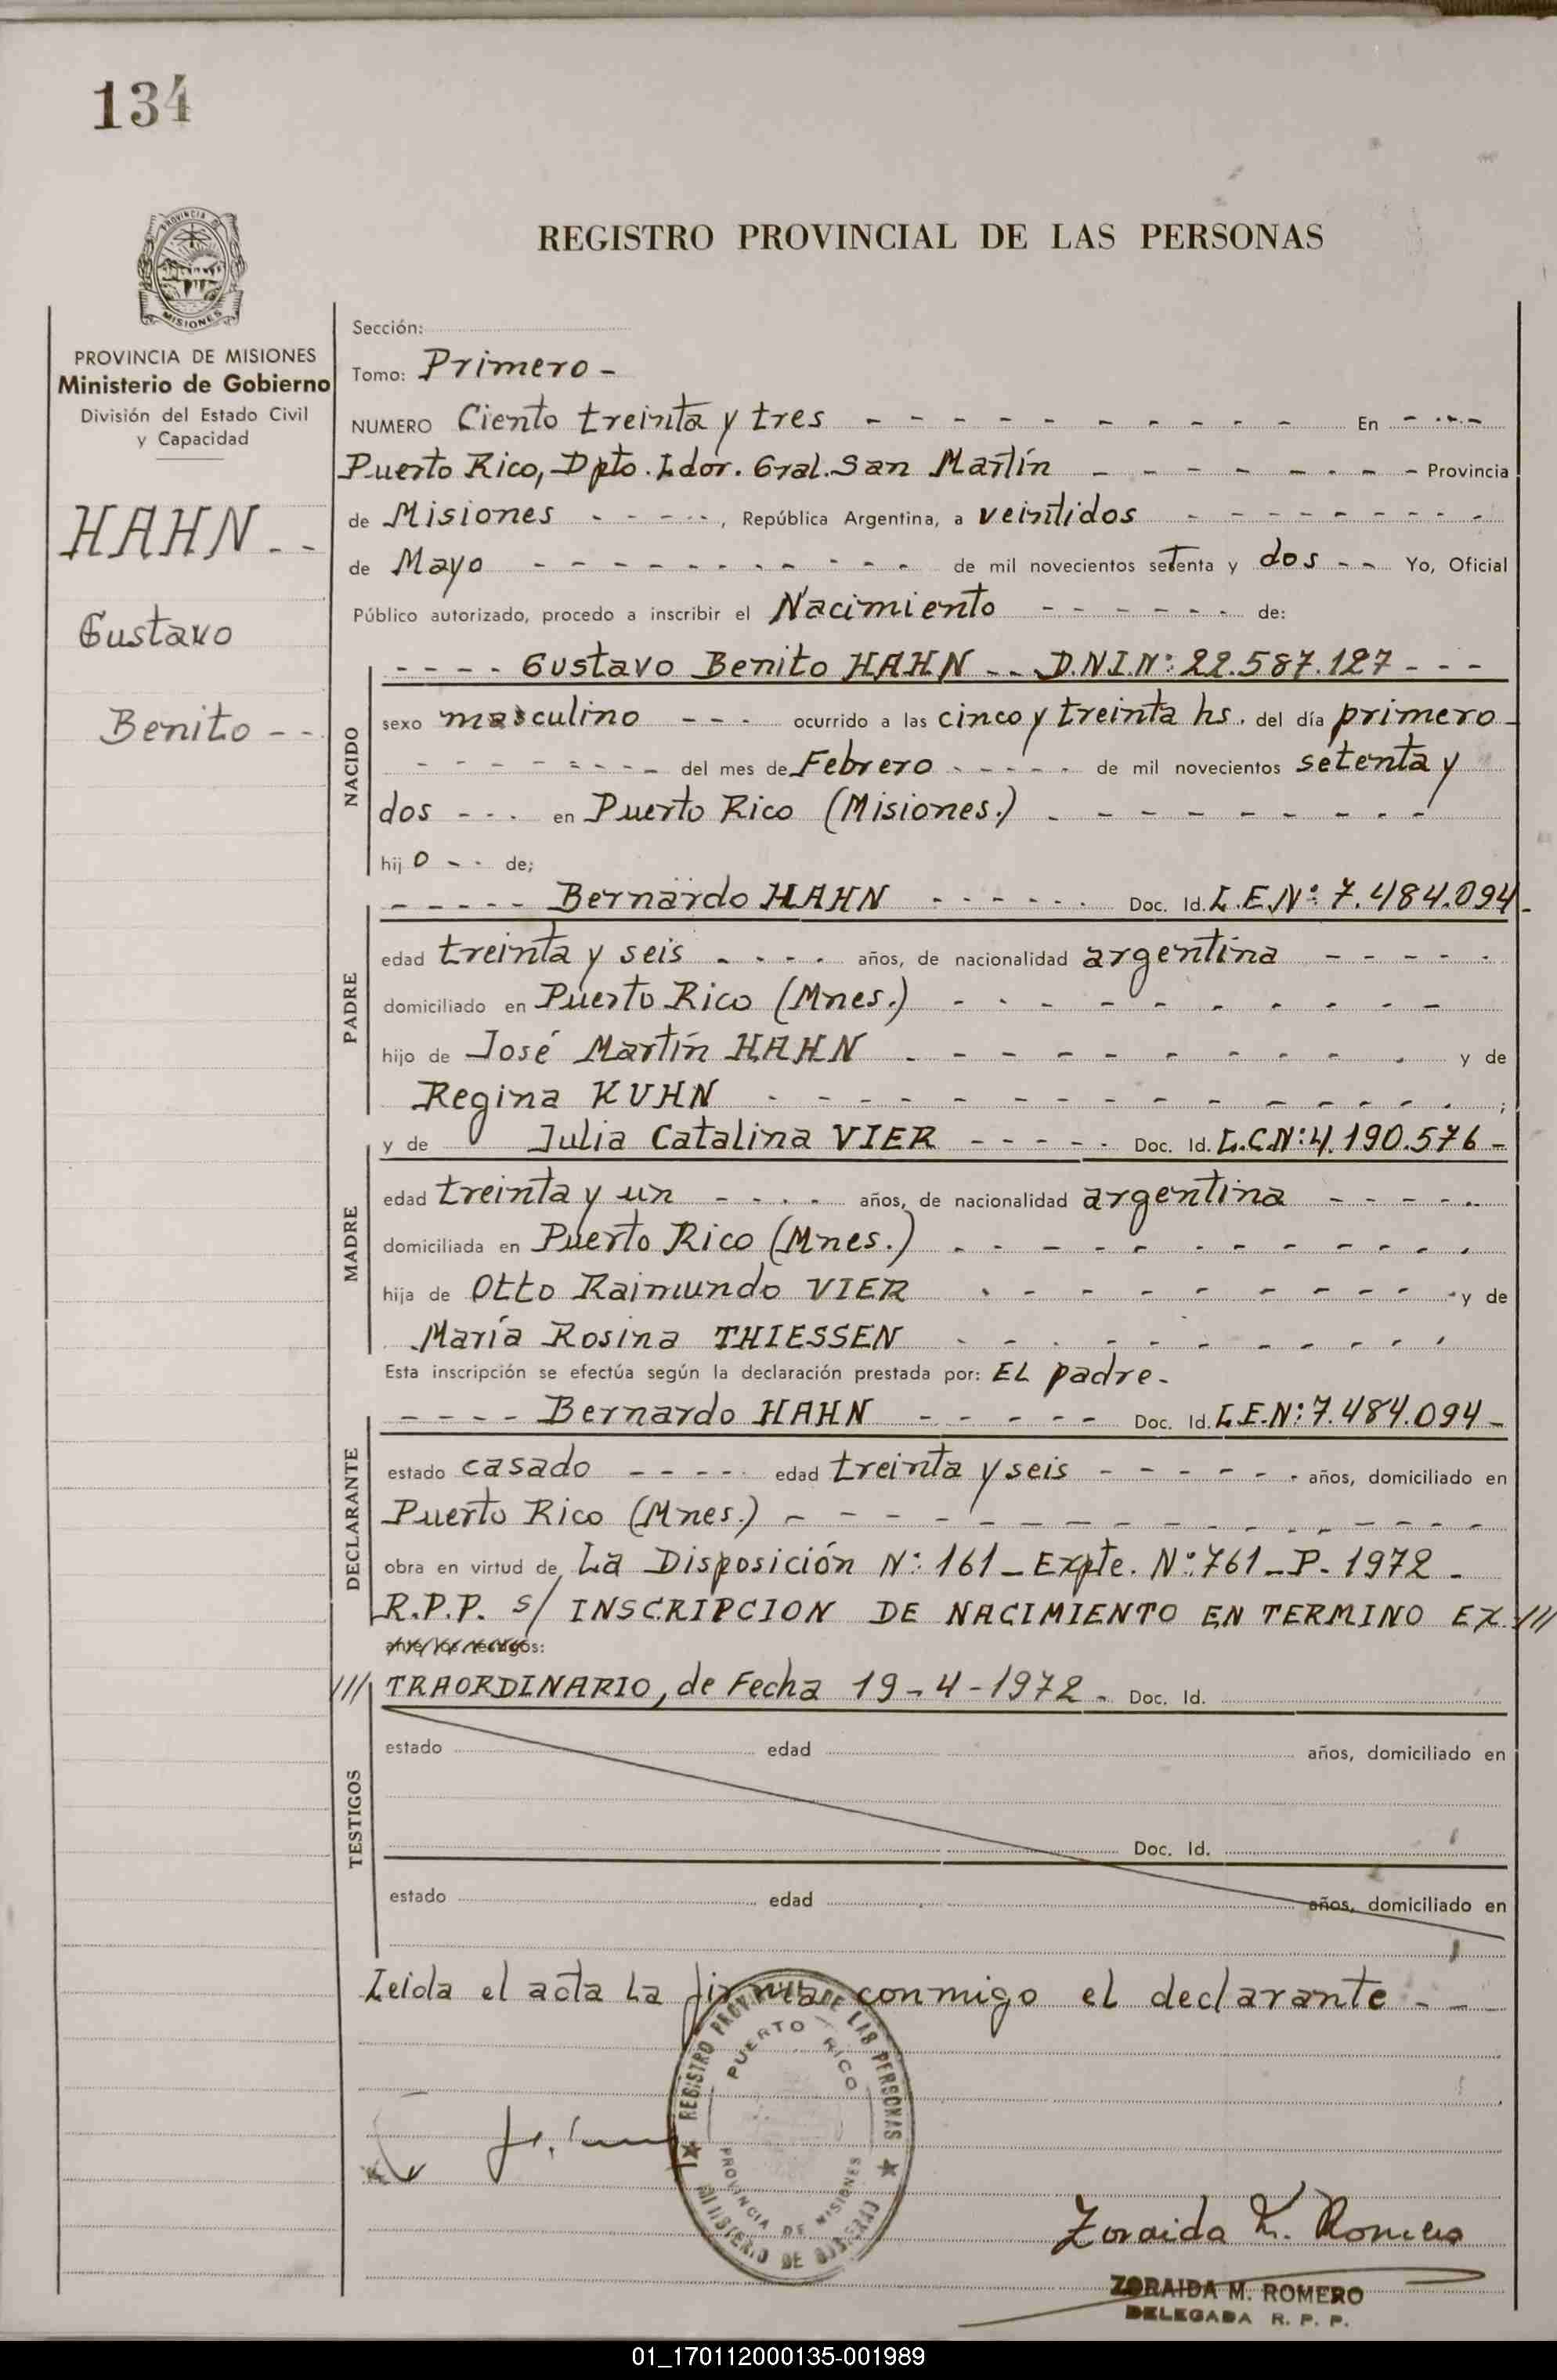 134
PROVINCIA DE
MISIONES
PROVINCIA DE MISIONES
Ministerio de Gobierno
División del Estado Civil
y Capacidad
HAHN - -
Gustavo
Benito - -
REGISTRO PROVINCIAL DE LAS PERSONAS
Sección:
Tomo: Primero -
NUMERO Ciento treinta y tres - - - - - - - - - - En - - - -
Puerto Rico, Dpto. Ldor. Gral. San Martín - - - - - - - - Provincia
de Misiones - - - - - , República Argentina, a veintidos - - - - - - - - -
de Mayo - - - - - - - - - - de mil novecientos setenta y dos - - Yo, Oficial
Público autorizado, procedo a inscribir el Nacimiento - - - - - - de:
NACIDO
- - - - Gustavo Benito HAHN - - D.N.I.Nº: 22.587.127 - - -
sexo masculino - - - ocurrido a las cinco y treinta hs. del día primero -
- - - - - - - - del mes de Febrero - - - - - de mil novecientos setenta y
dos - - - en Puerto Rico (Misiones.) - - - - - - - - -
hij o - - de;
PADRE
- - - - - Bernardo HAHN - - - - - - Doc. Id. L.E.Nº: 7.484.094 -
edad treinta y seis - - - - años, de nacionalidad argentina - - - - -
domiciliado en Puerto Rico (Mnes.) - - - - - - - - - -
hijo de José Martín HAHN - - - - - - - - - - y de
Regina KUHN - - - - - - - - - - - - - ;
MADRE
y de Julia Catalina VIER - - - - - Doc. Id. L.C.Nº: 4.190.576 -
edad treinta y un - - - - años, de nacionalidad argentina - - - - -
domiciliada en Puerto Rico (Mnes.) - - - - - - - - - - -
hija de Otto Raimundo VIER - - - - - - - - - - y de
María Rosina THIESSEN - - - - - - - - - -
Esta inscripción se efectúa según la declaración prestada por: EL padre -
DECLARANTE
- - - - Bernardo HAHN - - - - - Doc. Id. L.E.Nº: 7.484.094 -
estado casado - - - - - edad treinta y seis - - - - - - años, domiciliado en
Puerto Rico (Mnes.) - - - - - - - - - - - - - - -
obra en virtud de La Disposición Nº: 161 - Expte. Nº: 761 - P - 1972 -
R.P.P. s/ INSCRIPCION DE NACIMIENTO EN TERMINO EX ///
ante los testigos:
/// TRAORDINARIO, de Fecha 19-4-1972 - Doc. Id.
TESTIGOS
estado edad años, domiciliado en
Doc. Id.
estado edad años, domiciliado en
Leida el acta la firma conmigo el declarante - - -
REGISTRO PROVINCIAL DE LAS PERSONAS
PUERTO RICO
PROVINCIA DE MISIONES
MINISTERIO DE GOBIERNO
Zoraida M. Romero
ZORAIDA M. ROMERO
DELEGADA R. P. P.
01_170112000135-001989